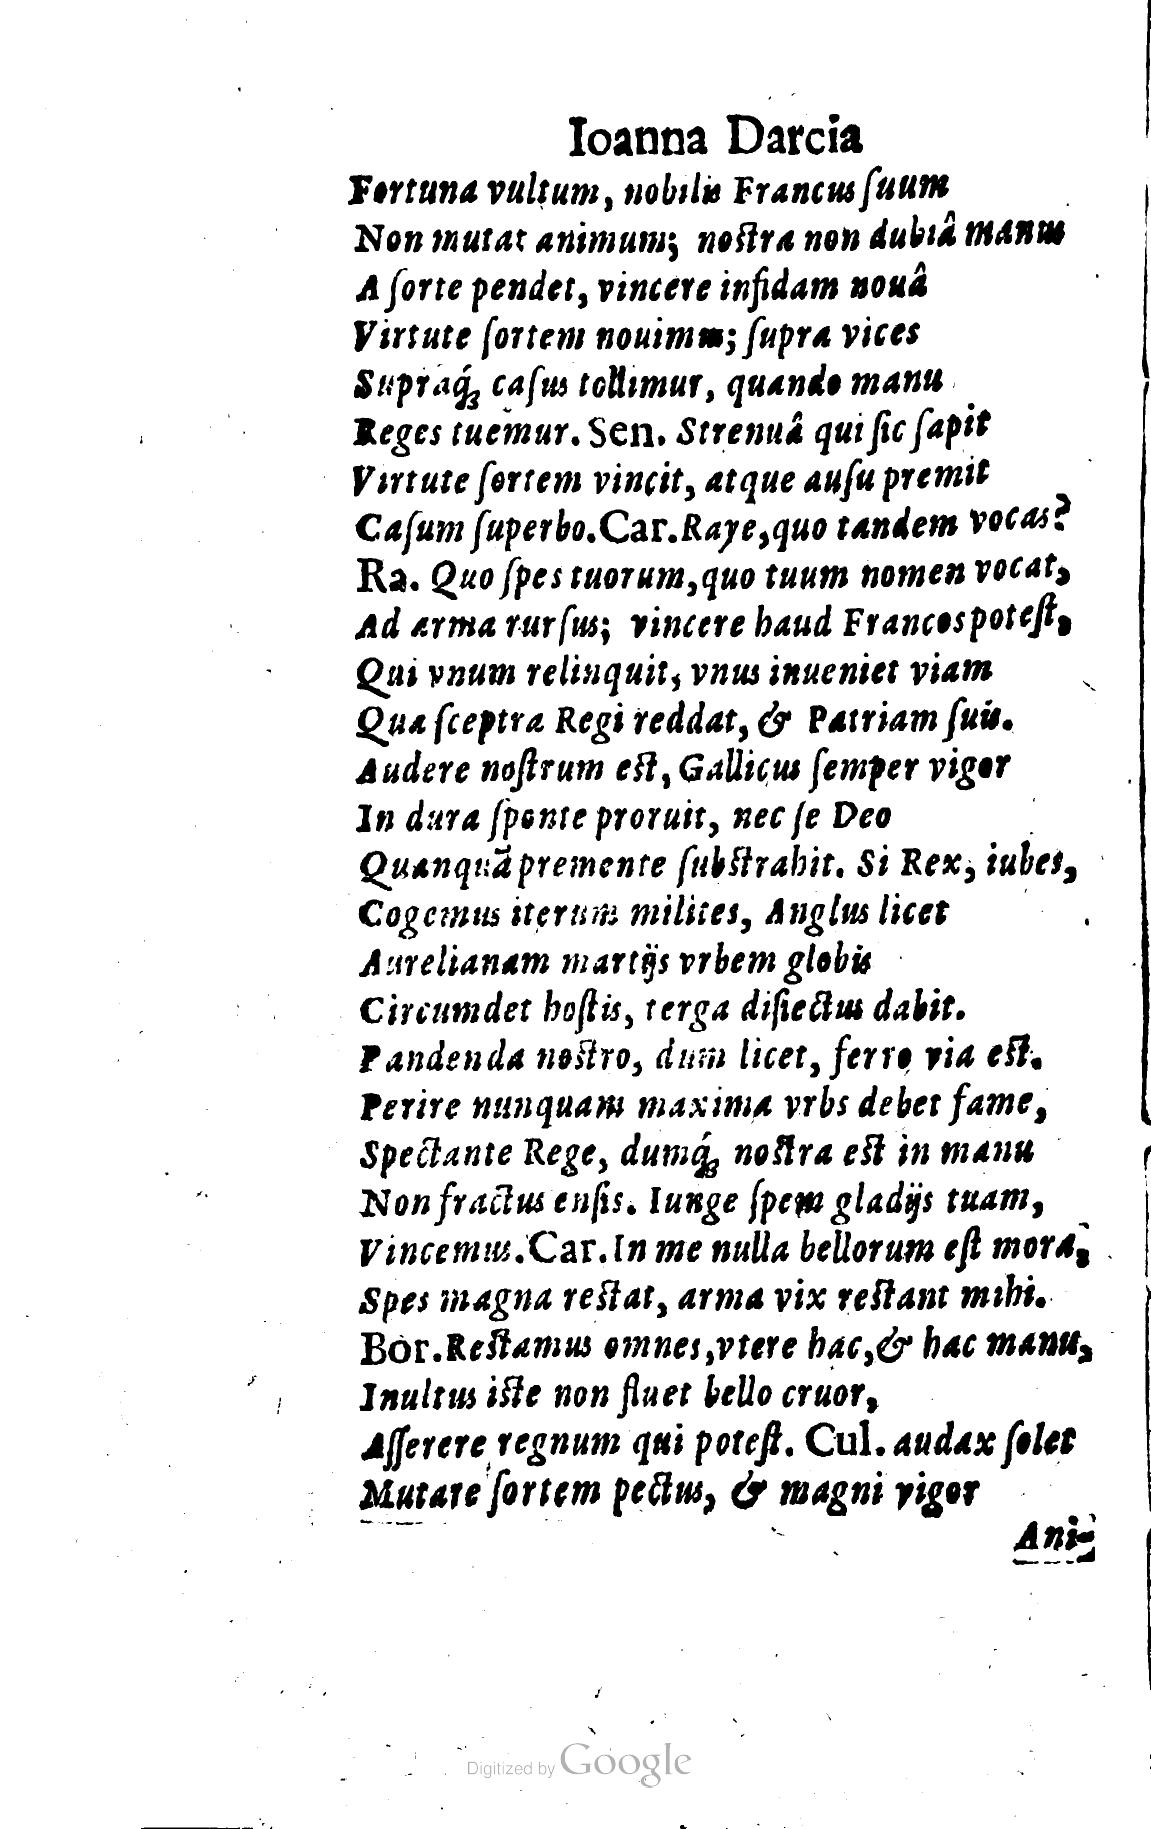 Ioanna Darcia
Fortuna vultum, nobilis Francus ſuum
Non mutat animum; noſtra non dubiâ manus
A ſorte pendet, vincere infidam nouâ
Virtute ſortem nouimus; ſupra vices
Supráq́ꝫ caſus tollimur, quando manu
Reges tuemur. Sen. Strenuâ qui ſic ſapit
Virtute ſortem vincit, atque auſu premit
Caſum ſuperbo. Car. Raye, quo tandem vocas?
Ra. Quo ſpes tuorum, quo tuum nomen vocat,
Ad arma rurſus; vincere haud Francos poteſt,
Qui vnum relinquit, vnus inueniet viam
Qua ſceptra Regi reddat, & Patriam ſuis.
Audere noſtrum eſt, Gallicus ſemper vigor
In dura ſponte proruit, nec ſe Deo
Quanquã premente ſubſtrahit. Si Rex, iubes,
Cogemus iterum milites, Anglus licet
Aurelianam martijs vrbem globis
Circumdet hoſtis, terga diſiectus dabit.
Pandenda noſtro, dum licet, ferro via eſt.
Perire nunquam maxima vrbs debet fame,
Spectante Rege, dumq́ꝫ noſtra eſt in manu
Non fractus enſis. Iunge ſpem gladijs tuam,
Vincemus. Car. In me nulla bellorum eſt mora,
Spes magna reſtat, arma vix reſtant mihi.
Bor. Reſtamus omnes, vtere hac, & hac manu,
Inultus iſte non fluet bello cruor,
Aſſerere regnum qui poteſt. Cul. audax ſolet
Mutare ſortem pectus, & magni vigor
Ani-
Digitized by Google